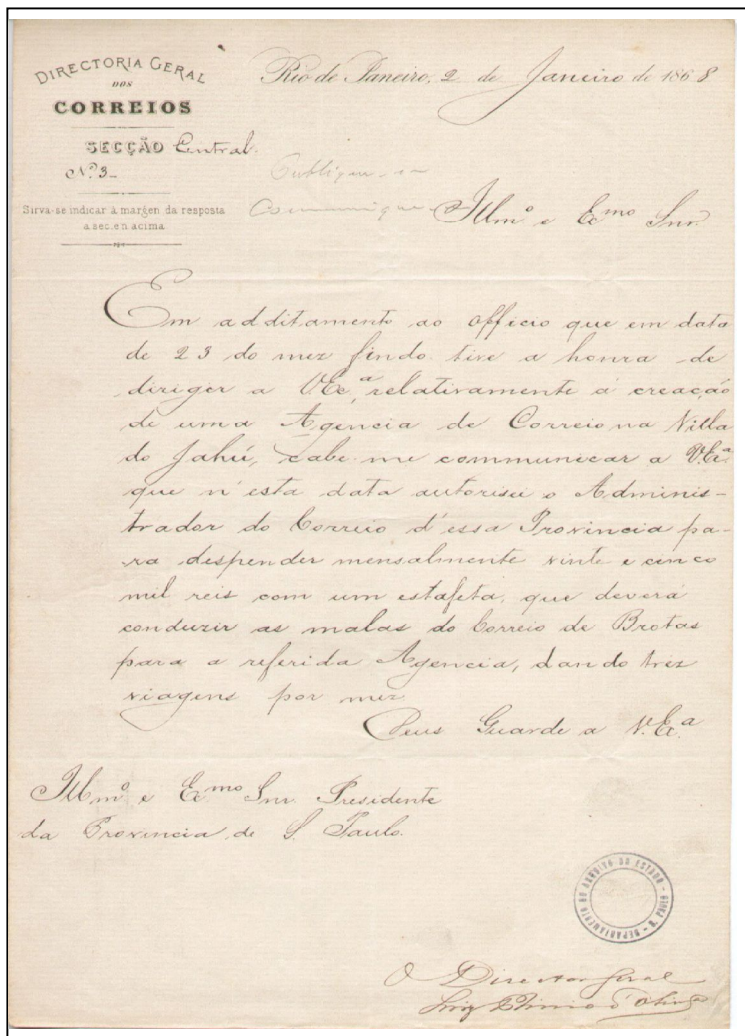 DIRECTORIA GERAL
DOS
CORREIOS
SECÇÃO Central.
Nº 3-
Sirva-se indicar à margen da resposta
a sec.en acima
Rio de Janeiro, 2 de Janeiro de 1868
Publique-se
Communique-se
Illmº e Exmo Snr.
Em additamento ao officio que em data
de 23 do mez findo tive a honra de
dirigir a VExª, relativamente á creação
de uma Agencia de Correio na Villa
do Jahú, cabe-me communicar a VExª
que n'esta data autorisei o Adminis-
trador do Correio d'essa Provincia pa-
ra despender mensalmente vinte e cinco
mil reis com um estafeta, que deverá
conduzir as malas do Correio de Brotas
para a referida Agencia, dando trez
viagens por mez
Deus Guarde a V.Exª
Illmº e Exmo Snr. Presidente
da Provincia de S. Paulo.
DEPARTAMENTO DO ARQUIVO DO ESTADO
O Director Geral
Luiz Plinio d'Olivrª